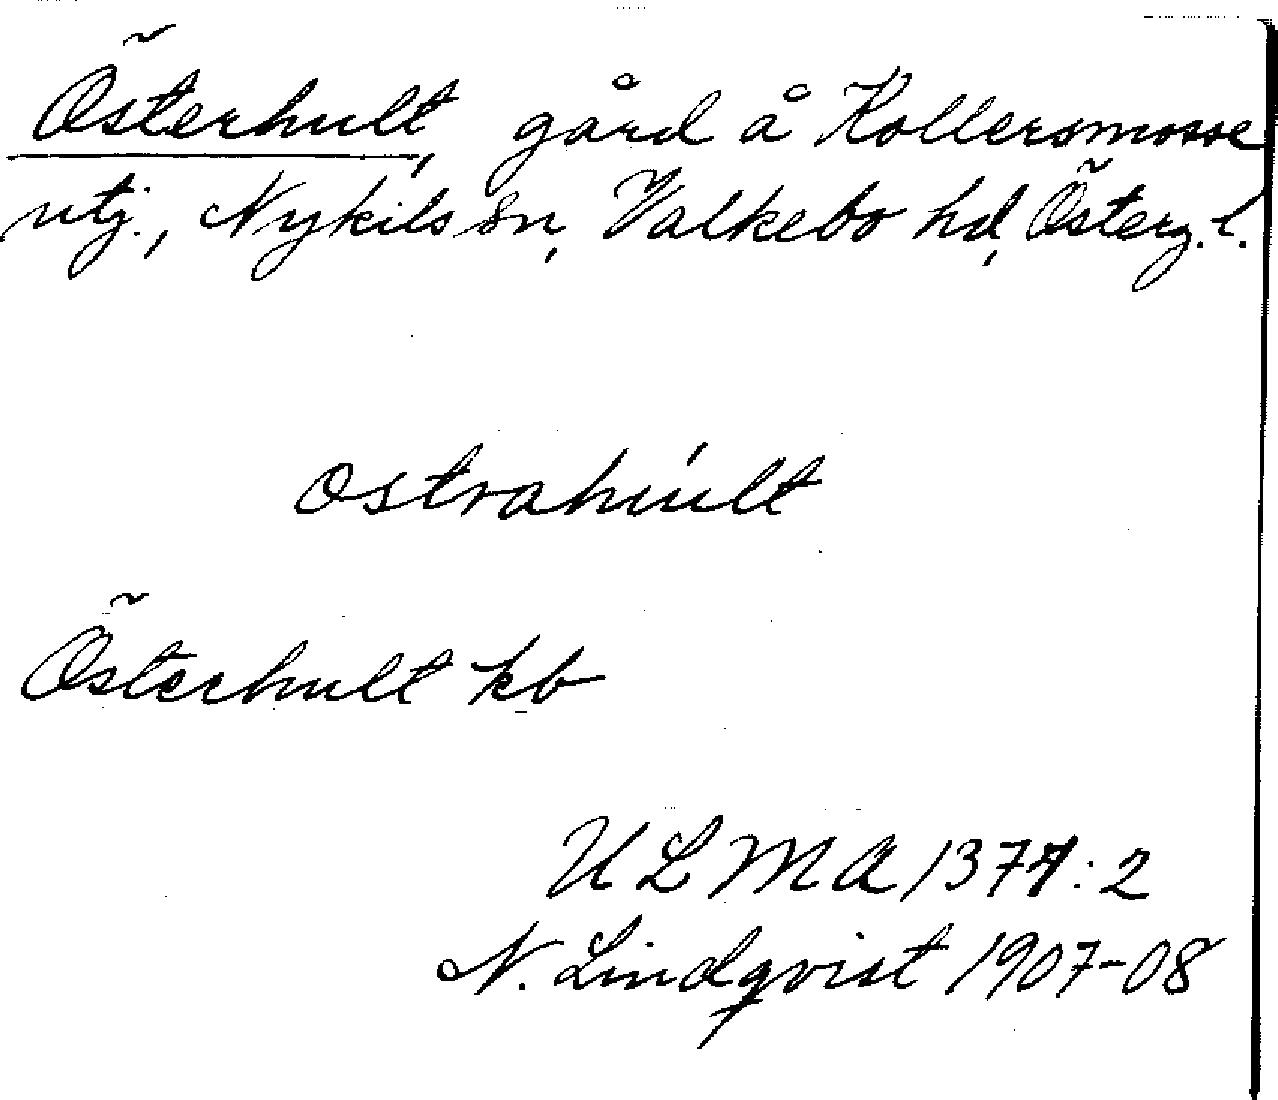 Österhult, gård å Kollersmosse
utj., Nykils sn, Valkebo hd, Österg. l.
ostrahúlt
Österhult kb
ULMA 1371:2
N. Lindqvist 1907-08